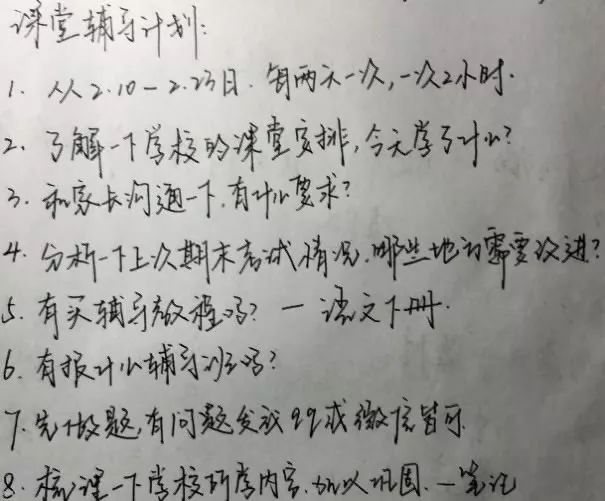 课堂辅导计划:
1. 从2.10-2.23日.每两天一次,一次2小时.
2. 了解一下学校的课堂安排,今天学了什么?
3. 和家长沟通一下.有什么要求?
4. 分析一下上次期末考试情况.哪些地方需要改进?
5. 有买辅导教程吗? — 语文下册.
6. 有报什么辅导班吗?
7. 先做题,有问题发我QQ或微信皆可.
8. 梳理一下学校所学内容.加以巩固.—笔记